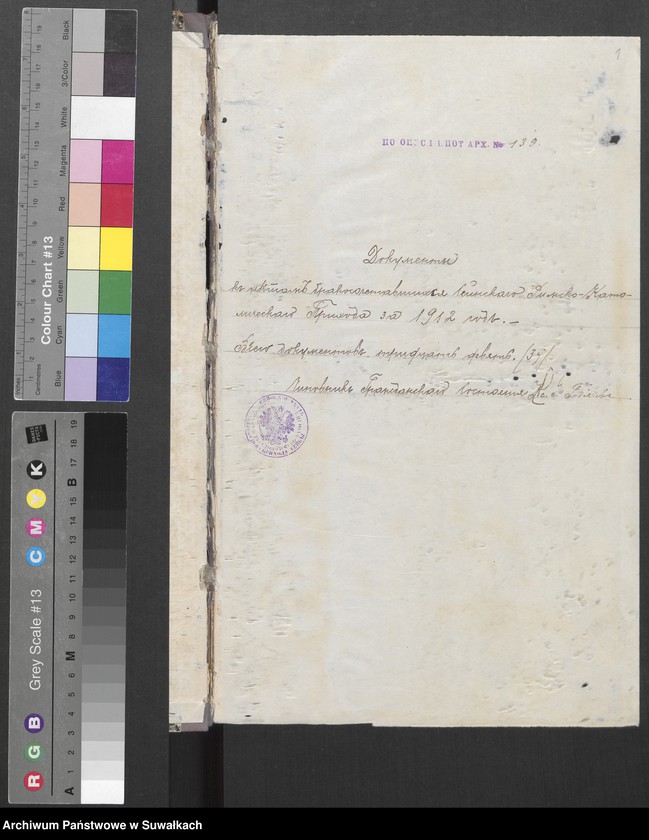 1
ПО ОПИСИ ИПОТ. АРХ. № 139.
Документы
къ актамъ бракосочетавшихся Сейнскаго Римско-Като-
лическаго Прихода за 1912 годъ. –
Всего документовъ тридцать девять. (39).
Чиновникъ Гражданскаго Состоянія
Colour Chart #13
Black
3/Color
White
Magenta
Red
Yellow
Green
Cyan
Blue
Inches
Centimetres
Grey Scale #13
R G B C M Y K
A 1 2 3 4 5 6 M 8 9 10 11 12 13 14 15 B 17 18 19
Archiwum Państwowe w Suwałkach